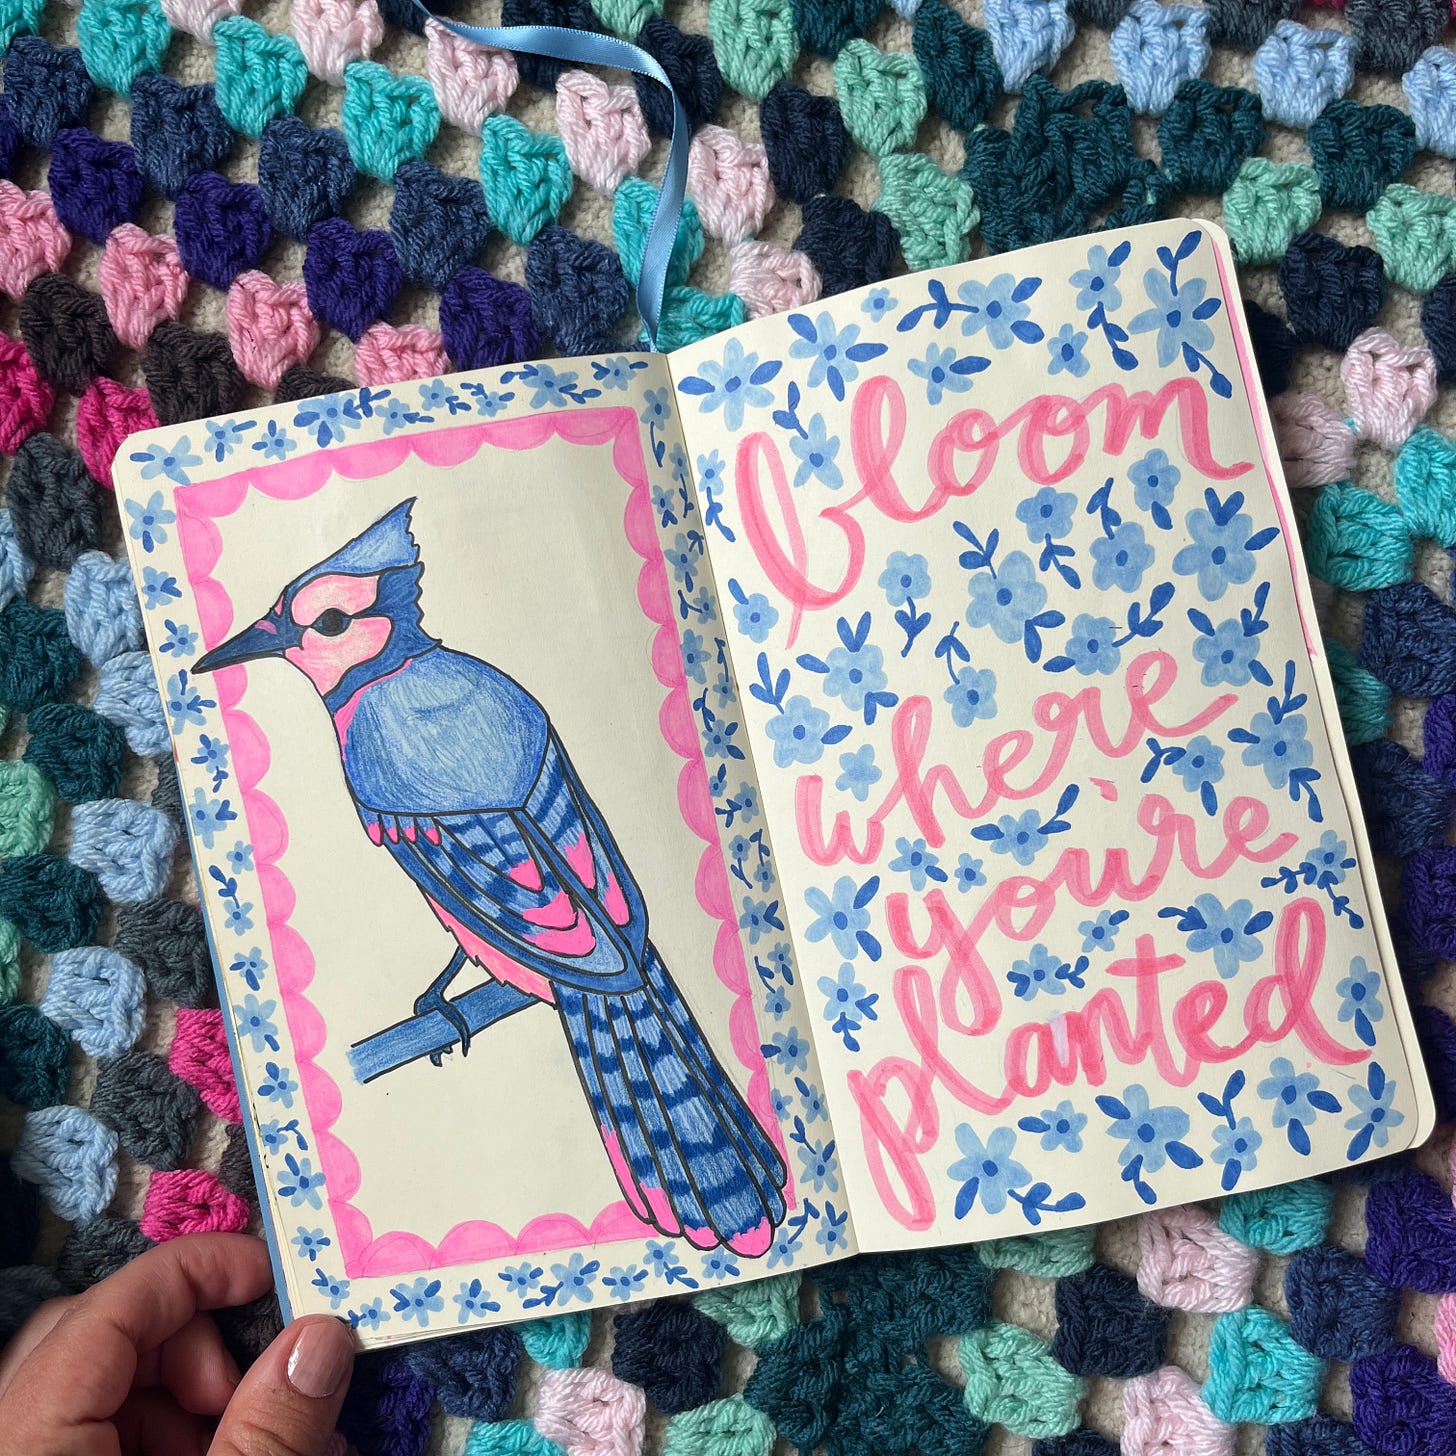 bloom
where
you're
planted